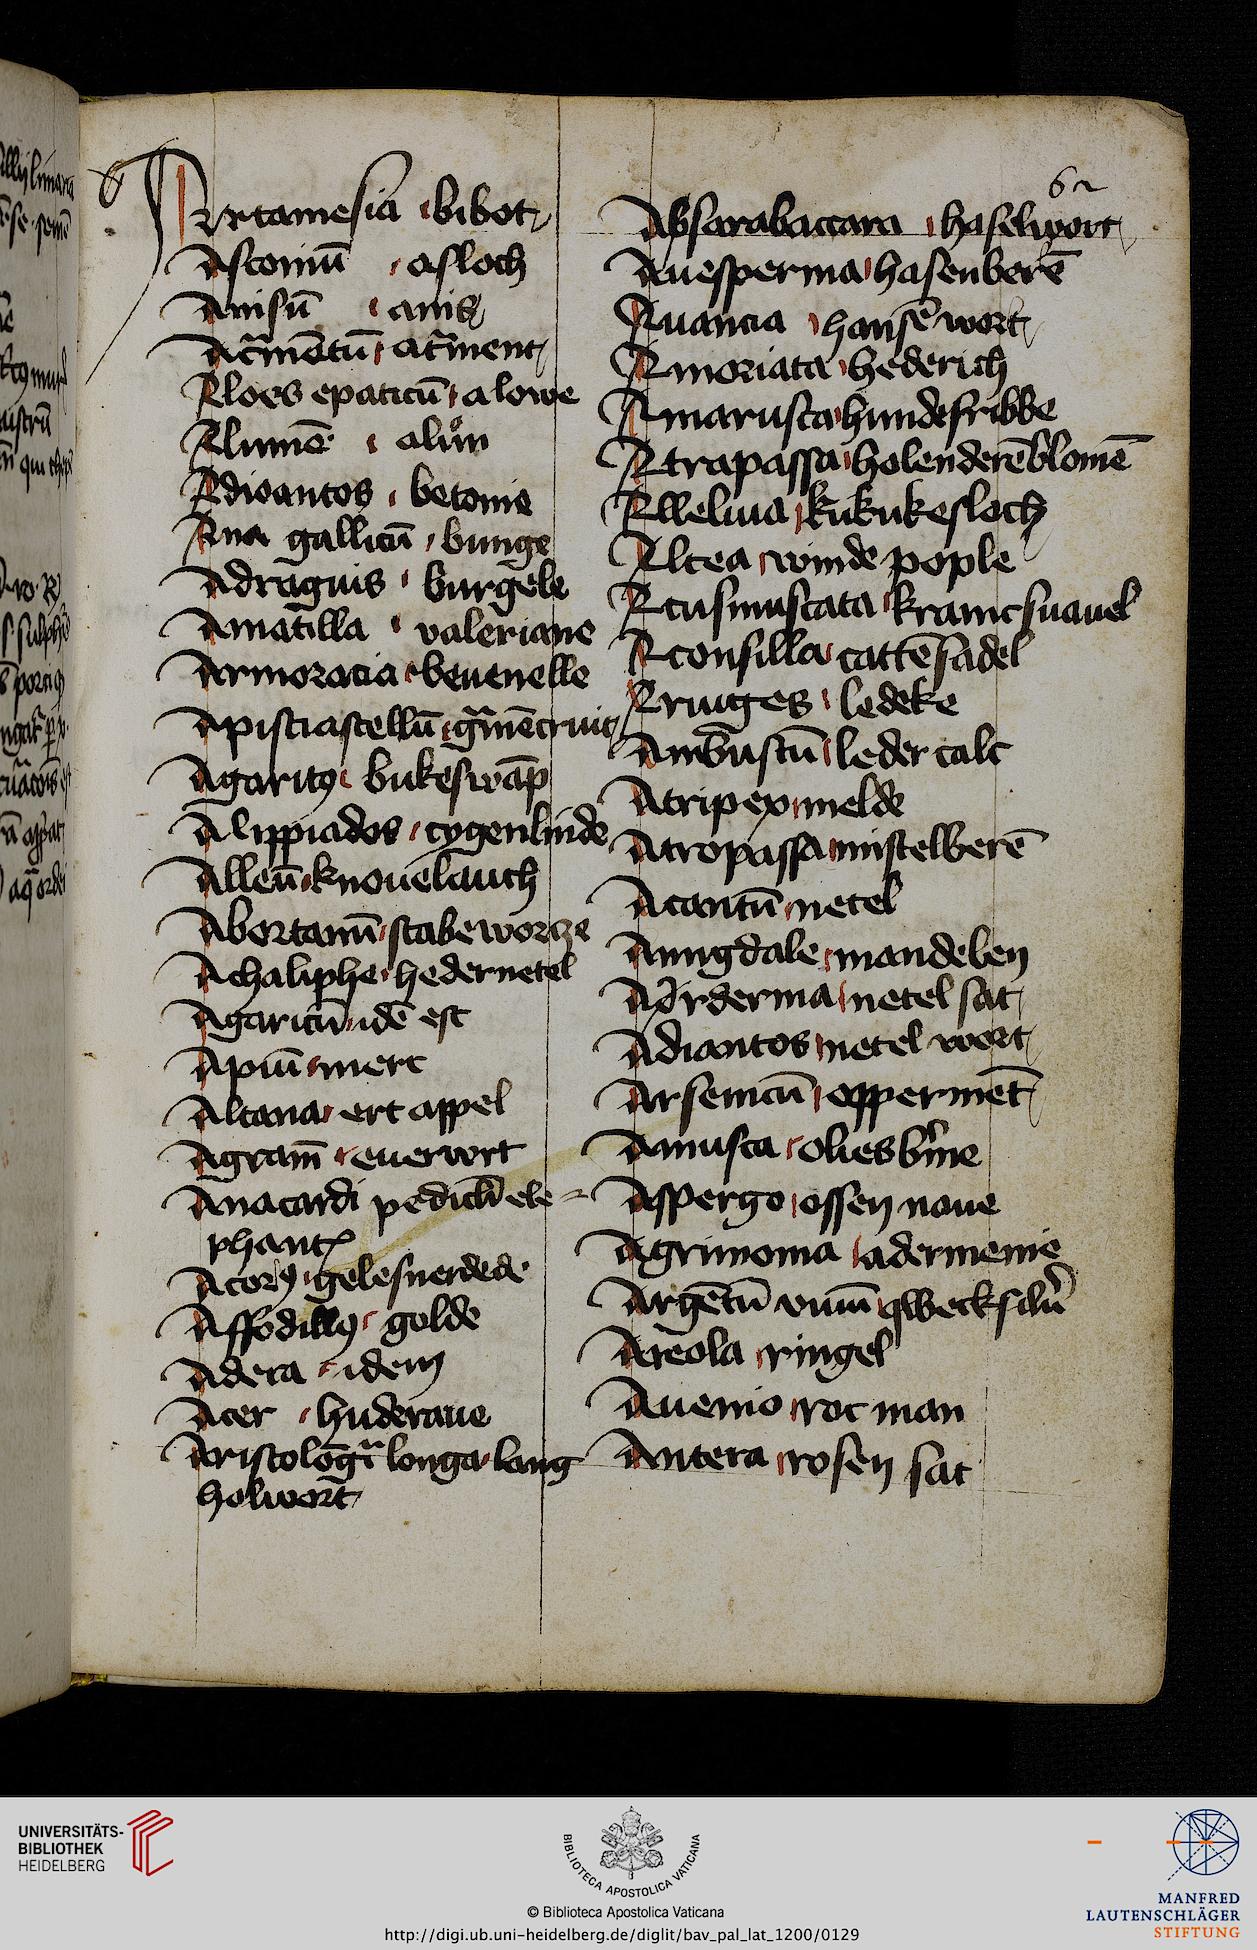 62
Artamesia bibot
Asconiū asloch
Anisū anis
Acͬmētū atͬment
Aloes epaticū alowe
Alumē alun
Adioantos betonie
Ana gallicū bunge
Adraguis burgele
Amatilla valeriane
Armoracia beuenelle
Agaritꝯ bukeswāp
Alippiados cygenlinde
Alleū knouelauch
Abortanū stabeworcze
Achaliphe hedernetel
Agaricū idē est
Apiū merc
Altana ert appel
Agram̄ euerwrt
Anacardi pediclͥ ele
phant
Acorꝯ
Affodillꝯ golde
Adera idem
Acer huderaue
Aristologͥ longa lang
holwort
Absarabaccara haselwort
Auesperma hasenberē
Auancia hansē wort
Amoriata hederich
Amarusca hundesribbe
Atrapassa holenderēblomē
Alleliua kukukesloch
Altea winde pople
Acusmuscata kramcsnauel
Aconsilla cattē sadel
Aruiges ledeke
Ambustū leder calc
Atripex melde
Atropassa mistelberē
Acantū netel
Amigdale mandelen
netel sat
Adiantos netel wort
Arsenicū oppermēt
Amusca
Aspergo ossen
Agrimonia adermenie
Argētū viuū qwecksilu̓
Areola ringel
Auenio roc man
Antera rosen sat
UNIVERSITÄTS-
BIBLIOTHEK
HEIDELBERG
BIBLIOTECA APOSTOLICA VATICANA
© Biblioteca Apostolica Vaticana
http://digi.ub.uni-heidelberg.de/diglit/bav_pal_lat_1200/0129
MANFRED
LAUTENSCHLÄGER
STIFTUNG